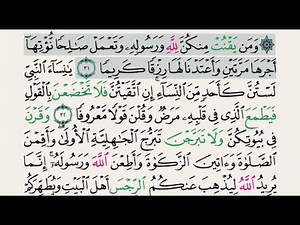 ۞ وَمَن يَقْنُتْ مِنكُنَّ لِلَّهِ وَرَسُولِهِۦ وَتَعْمَلْ صَٰلِحًا نُّؤْتِهَآ
أَجْرَهَا مَرَّتَيْنِ وَأَعْتَدْنَا لَهَا رِزْقًا كَرِيمًا ٣١ يَٰنِسَآءَ ٱلنَّبِىِّ
لَسْتُنَّ كَأَحَدٍ مِّنَ ٱلنِّسَآءِ إِنِ ٱتَّقَيْتُنَّ فَلَا تَخْضَعْنَ بِٱلْقَوْلِ
فَيَطْمَعَ ٱلَّذِى فِى قَلْبِهِۦ مَرَضٌ وَقُلْنَ قَوْلًا مَّعْرُوفًا ٣٢ وَقَرْنَ
فِى بُيُوتِكُنَّ وَلَا تَبَرَّجْنَ تَبَرُّجَ ٱلْجَٰهِلِيَّةِ ٱلْأُولَىٰ وَأَقِمْنَ
ٱلصَّلَوٰةَ وَءَاتِينَ ٱلزَّكَوٰةَ وَأَطِعْنَ ٱللَّهَ وَرَسُولَهُۥٓ إِنَّمَا
يُرِيدُ ٱللَّهُ لِيُذْهِبَ عَنكُمُ ٱلرِّجْسَ أَهْلَ ٱلْبَيْتِ وَيُطَهِّرَكُمْ